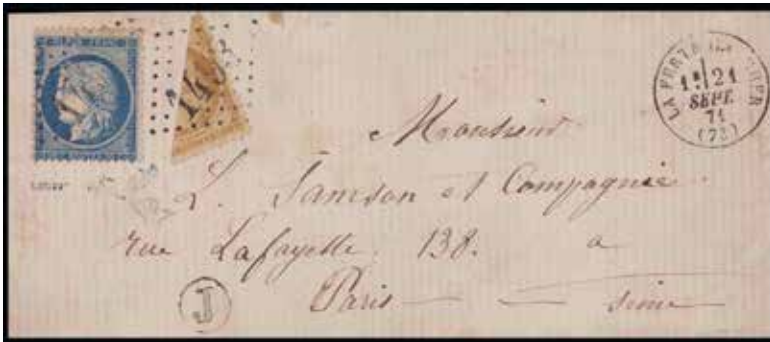 REPUB. FRANC.
1493
LA FERTÉ
1E 21
SEPT.
71
(73)
Monsieur
L. Samson et Compagnie
rue Lafayette. 138. a
Paris — — Seine —
J